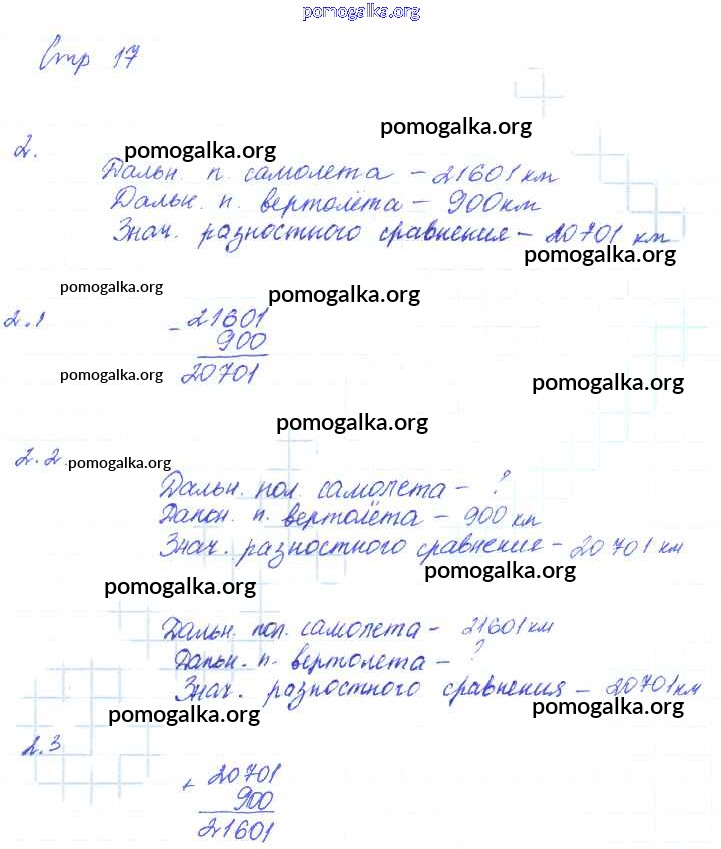 pomogalka.org
Стр 17
pomogalka.org
2.
pomogalka.org
Дальн. п. самолета – 21601 км
Дальн. п. вертолёта – 900 км
Знач. разностного сравнения – 20701 км
pomogalka.org
pomogalka.org
pomogalka.org
2.1
- 21601
900
20701
pomogalka.org
pomogalka.org
pomogalka.org
2.2
pomogalka.org
Дальн. пол. самолета – ?
Дальн. п. вертолёта – 900 км
Знач. разностного сравнения – 20701 км
pomogalka.org
pomogalka.org
Дальн. пол. самолета – 21601 км
Дальн. п. вертолета – ?
Знач. разностного сравнения – 20701 км
pomogalka.org
pomogalka.org
2.3
+ 20701
900
21601